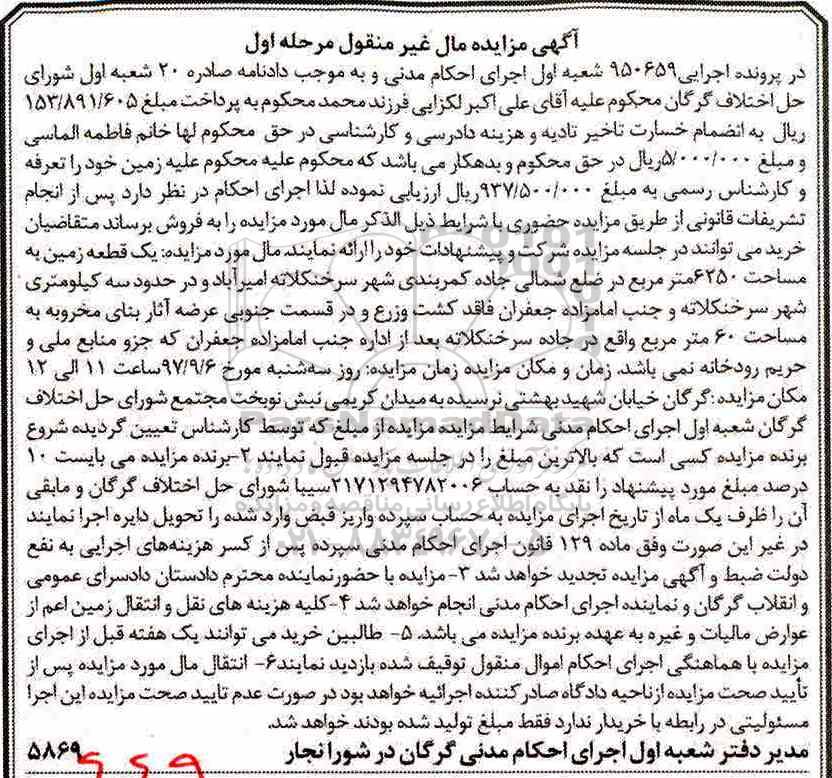 آگهی مزایده مال غیر منقول مرحله اول
در پرونده اجرایی۹۵۰۶۵۹ شعبه اول اجرای احکام مدنی و به موجب دادنامه صادره ۲۰ شعبه اول شورای
حل اختلاف گرگان محکوم علیه آقای علی اکبر لکزایی فرزند محمد محکوم به پرداخت مبلغ ۱۵۳/۸۹۱/۶۰۵
ریال به انضمام خسارت تاخیر تادیه و هزینه دادرسی و کارشناسی در حق محکوم لها خانم فاطمه الماسی
و مبلغ ۵/۰۰۰/۰۰۰ریال در حق محکوم و بدهکار می باشد که محکوم علیه محکوم علیه زمین خود را تعرفه
و کارشناس رسمی به مبلغ ۹۳۷/۵۰۰/۰۰۰ریال ارزیابی نموده لذا اجرای احکام در نظر دارد پس از انجام
تشریفات قانونی از طریق مزایده حضوری با شرایط ذیل الذکر مال مورد مزایده را به فروش برساند متقاضیان
خرید می توانند در جلسه مزایده شرکت و پیشنهادات خود را ارائه نمایند. مال مورد مزایده: یک قطعه زمین به
مساحت ۶۲۵۰متر مربع در ضلع شمالی جاده کمربندی شهر سرخنکلاته امیرآباد و در حدود سه کیلومتری
شهر سرخنکلاته و جنب امامزاده جعفران فاقد کشت وزرع و در قسمت جنوبی عرضه آثار بنای مخروبه به
مساحت ۶۰ متر مربع واقع در جاده سرخنکلاته بعد از اداره جنب امامزاده جعفران که جزو منابع ملی و
حریم رودخانه نمی باشد. زمان و مکان مزایده زمان مزایده: روز سه‌شنبه مورخ ۹۷/۹/۶ساعت ۱۱ الی ۱۲
مکان مزایده :گرگان خیابان شهید بهشتی نرسیده به میدان کریمی نبش نوبخت مجتمع شورای حل اختلاف
گرگان شعبه اول اجرای احکام مدنی شرایط مزایده مزایده از مبلغ که توسط کارشناس تعیین گردیده شروع
برنده مزایده کسی است که بالاترین مبلغ را در جلسه مزایده قبول نمایند ۲-برنده مزایده می بایست ۱۰
درصد مبلغ مورد پیشنهاد را نقد به حساب ۲۱۷۱۲۹۴۷۸۲۰۰۶سیبا شورای حل اختلاف گرگان و مابقی
آن را ظرف یک ماه از تاریخ اجرای مزایده به حساب سپرده واریز قبض وارد شده را تحویل دایره اجرا نمایند
در غیر این صورت وفق ماده ۱۲۹ قانون اجرای احکام مدنی سپرده پس از کسر هزینه‌های اجرایی به نفع
دولت ضبط و آگهی مزایده تجدید خواهد شد ۳-مزایده با حضورنماینده محترم دادستان دادسرای عمومی
و انقلاب گرگان و نماینده اجرای احکام مدنی انجام خواهد شد ۴-کلیه هزینه های نقل و انتقال زمین اعم از
عوارض مالیات و غیره به عهده برنده مزایده می باشد. ۵- طالبین خرید می توانند یک هفته قبل از اجرای
مزایده با هماهنگی اجرای احکام اموال منقول توقیف شده بازدید نمایند۶- انتقال مال مورد مزایده پس از
تأیید صحت مزایده ازناحیه دادگاه صادرکننده اجرائیه خواهد بود در صورت عدم تایید صحت مزایده این اجرا
مسئولیتی در رابطه با خریدار ندارد فقط مبلغ تولید شده بودند خواهد شد.
مدیر دفتر شعبه اول اجرای احکام مدنی گرگان در شورا نجار ۵۸۶۹
ParsNamadData
پایگاه اطلاع رسانی مناقصه و مزایده